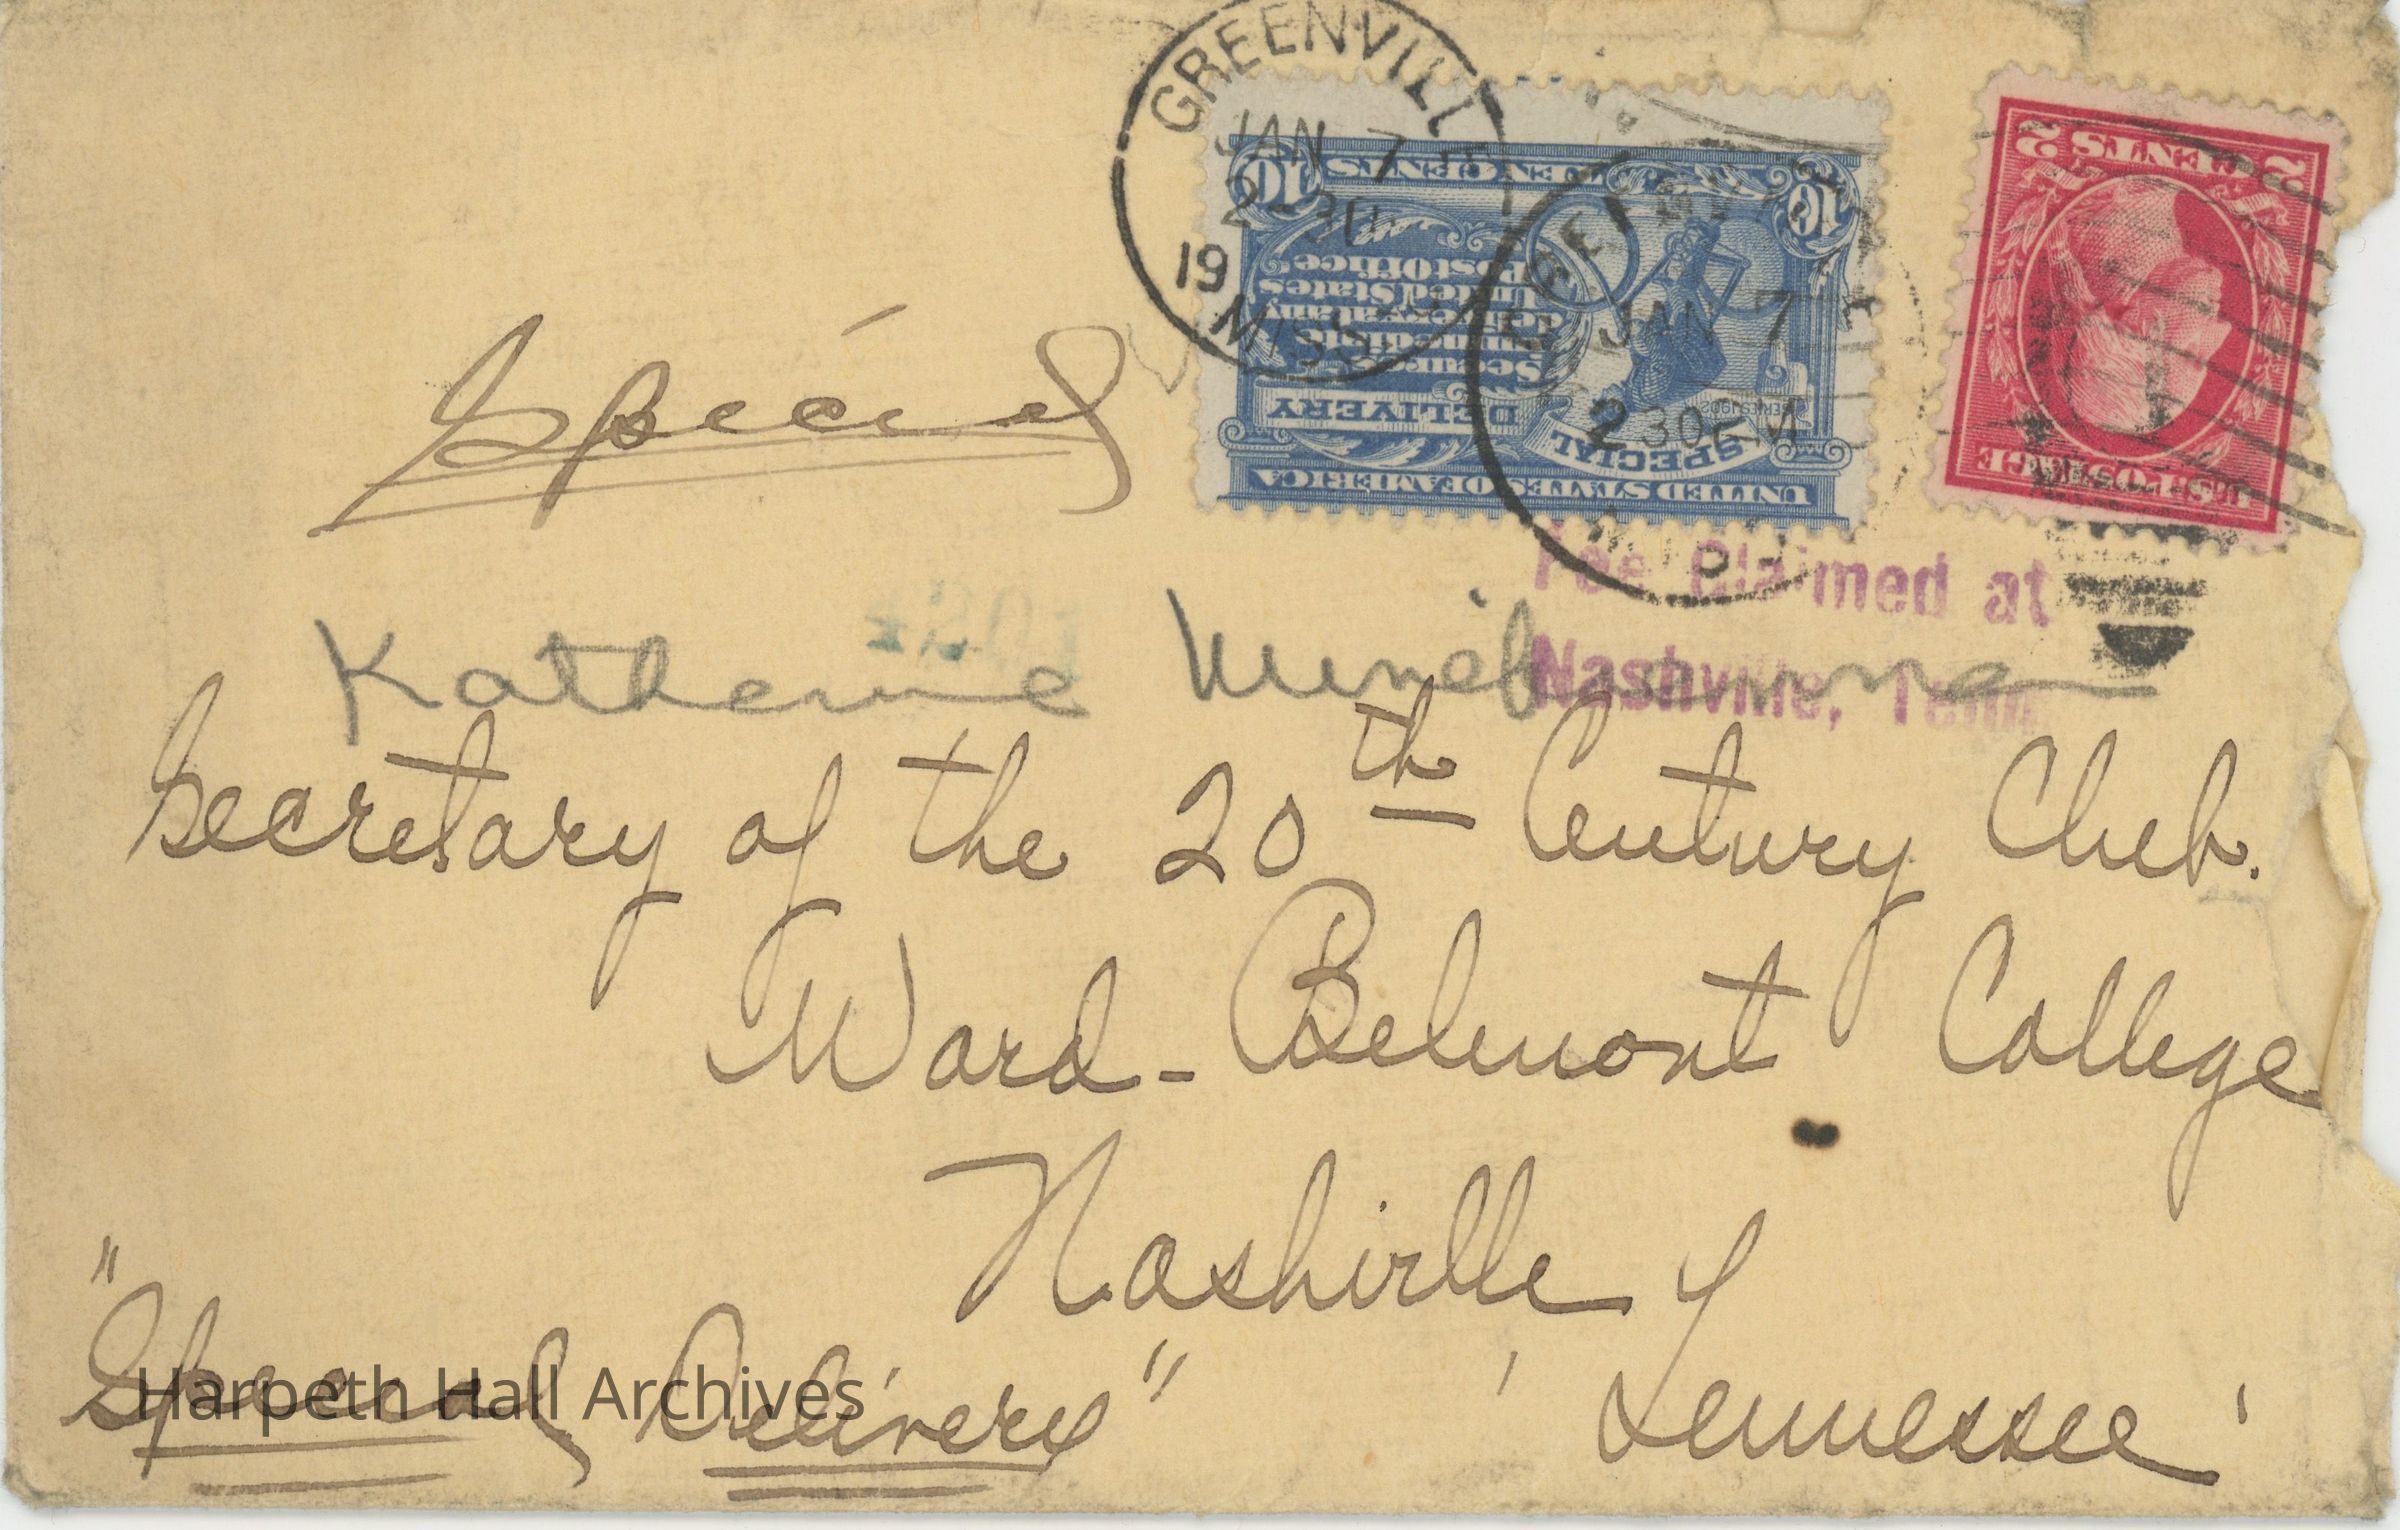 GREENVILL
JAN 7
2-30
19
MISS
TEN CENTS
10 10
Secures
immediate
delivery at any
United States
Postoffice.
SPECIAL DELIVERY
SERIES 1902
UNITED STATES OF AMERICA
JAN 7
230 PM
2 CENTS 2
U.S. POSTAGE
Special
Fee Claimed at
Nashville, Tenn.
Katherine
Secretary of the 20th Century Club.
Ward-Belmont College
Nashville
Tennessee
"Special Delivery"
Harpeth Hall Archives